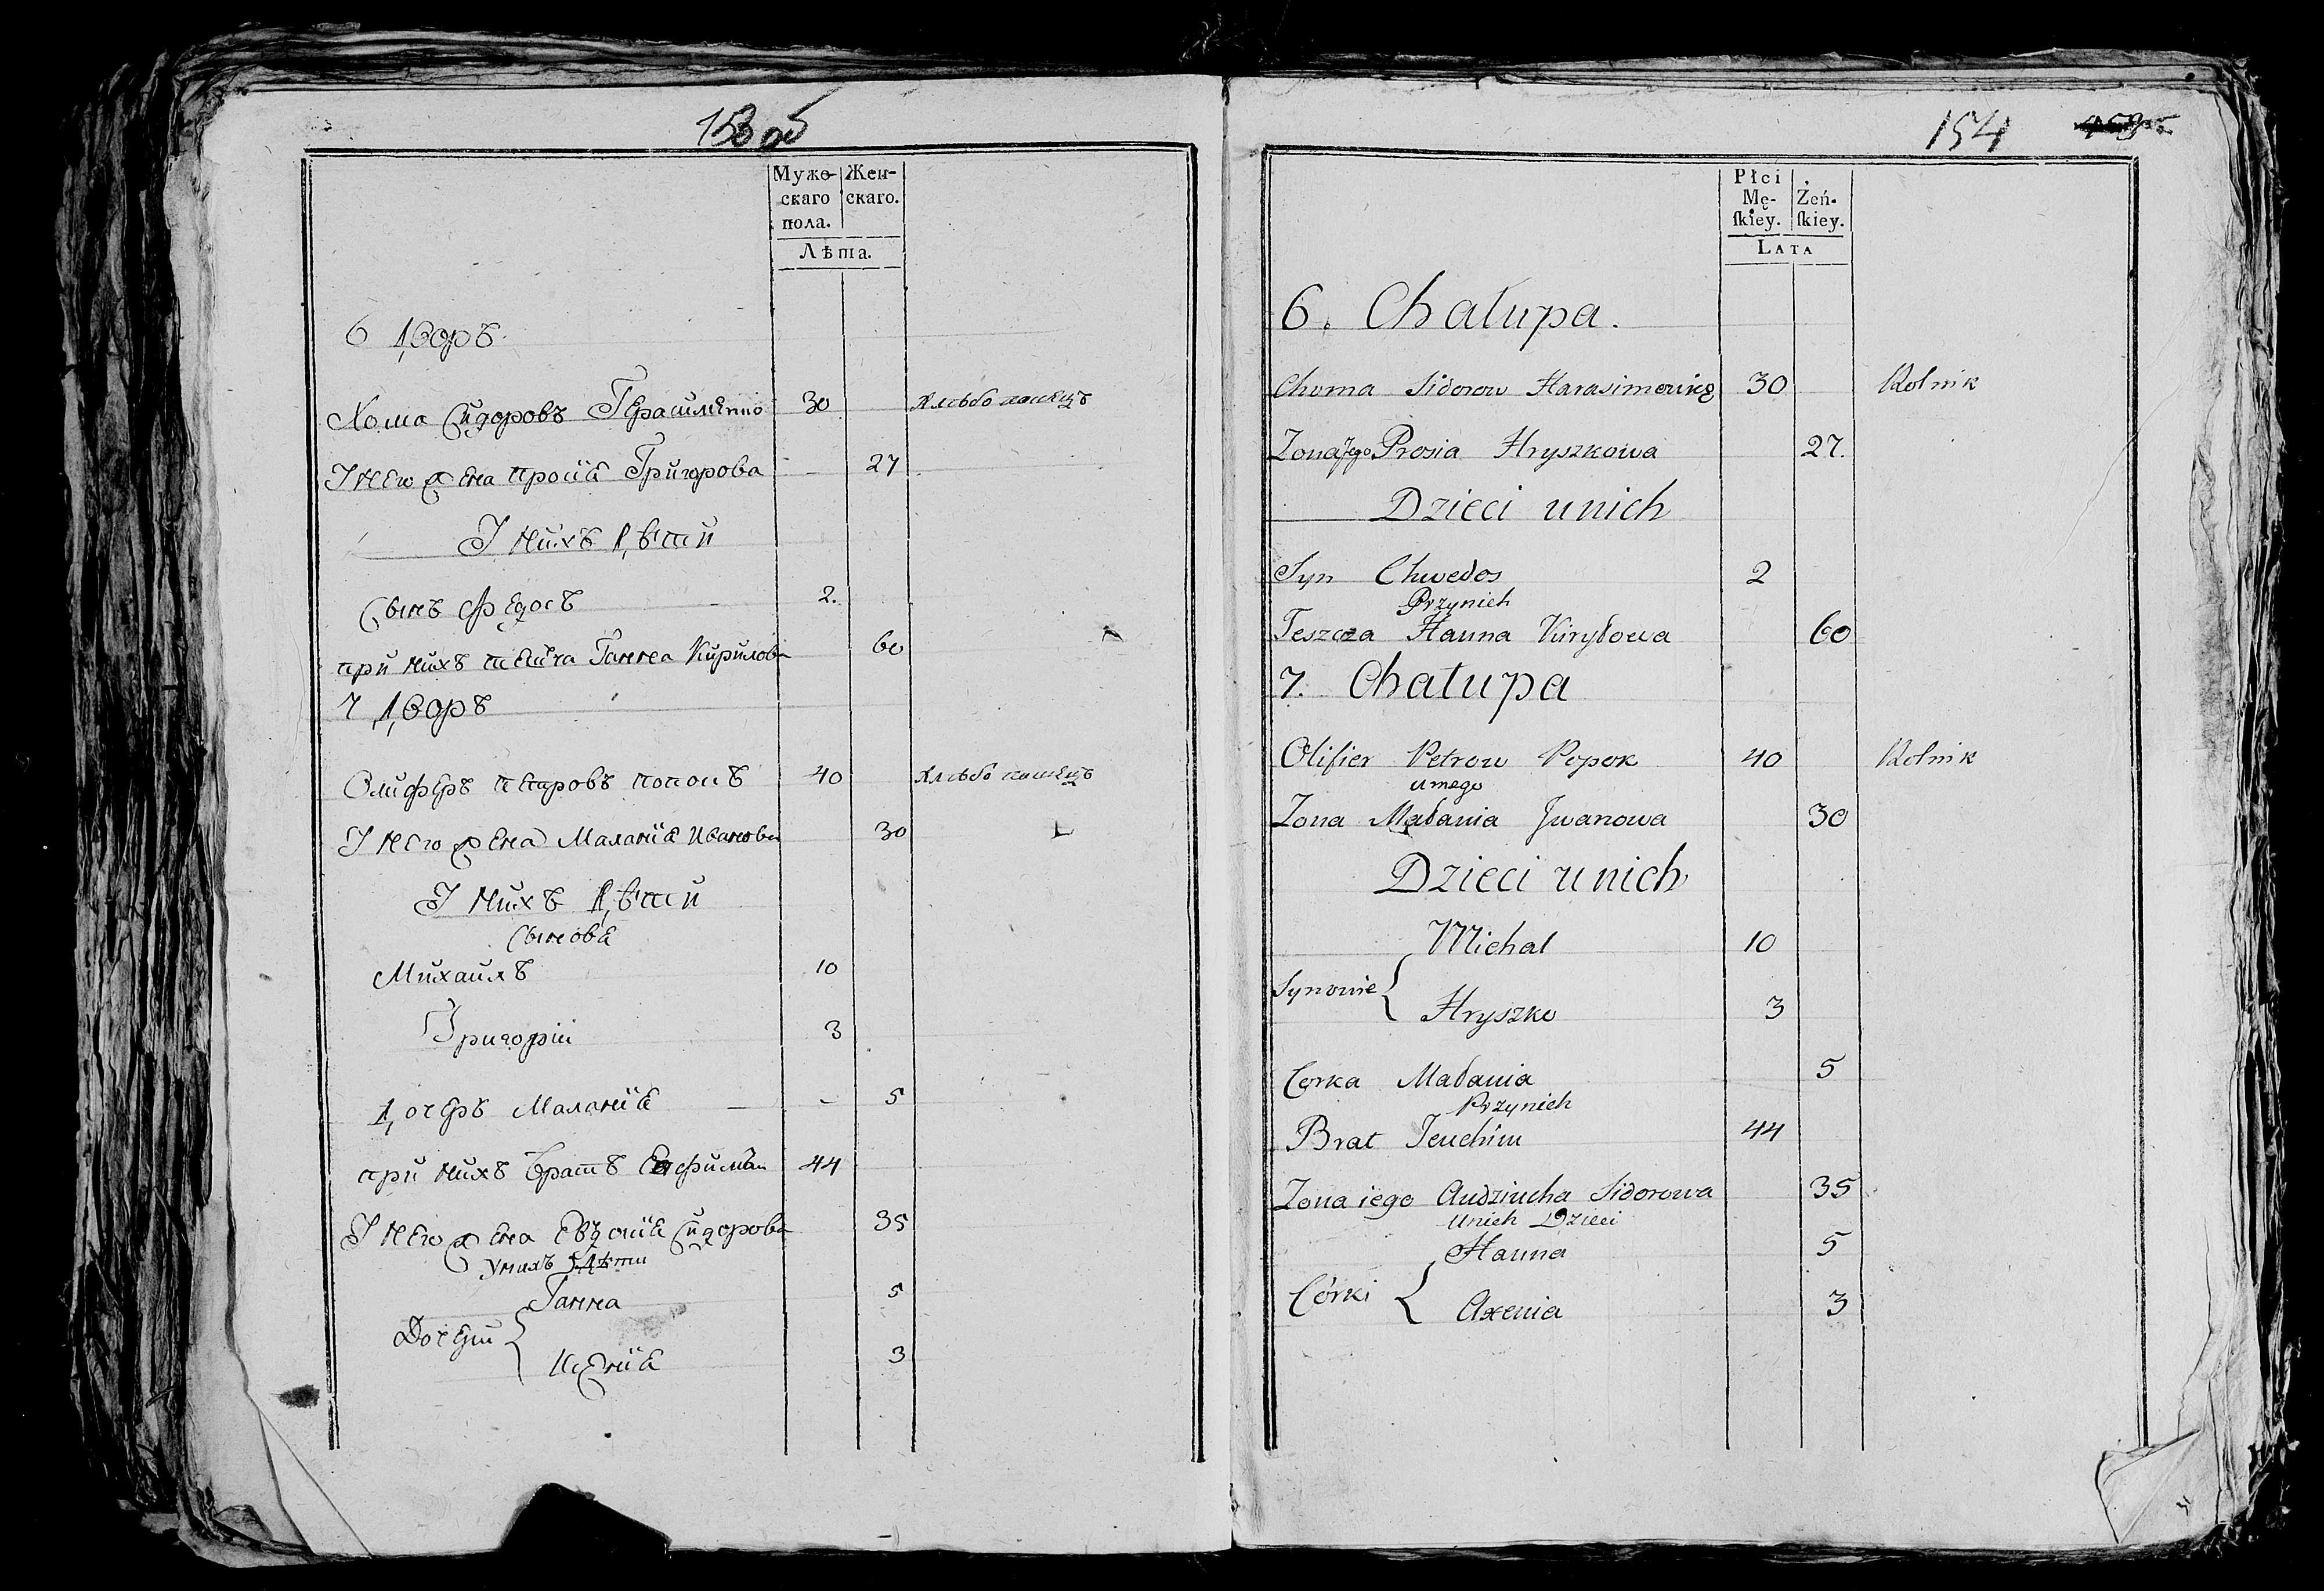 153 об
Мужо- Жен-
скаго скаго.
пола.
Лѣта.
6 Дворъ.
Хома Сидоровъ Герасименко 30 хлѣбопашецъ
У него жена Просия Григорова - 27
У нихъ дѣти
Сынъ Федосъ 2.
при нихъ теща Ганна Кирилова 60
7 Дворъ
Олиферъ Петровъ Попокъ 40 хлѣбопашецъ
У него жена Маланія Иванова 30
У нихъ дѣти
Сынова
Михаилъ 10
Григорій 3
Дочеръ Маланія - 5
при нихъ братъ 44
У него жена Евдокія Сидорова 35
У нихъ дѣти
Ганна 5
Дочери {
Ксенія 3
154
Płci
Mę- Żeń-
ſkiey. ſkiey.
LATA
6. Chałupa.
Choma Sidorow Harasimowicz 30 Rolnik
Zona Jego Prosia Hryszkowa 27.
Dzieci unich
Syn Chwedos 2
Przynich
Teszcza Hanna Kiryłowa 60
7. Chałupa
Olifier Petrow Popok 40 Rolnik
umego
Zona Małania Jwanowa 30
Dzieci unich
Michał 10
Synowie {
Hryszko 3
Corka Małania 5
Przynich
Brat Jeuchim 44
Zona iego Audziucha Sidorowa 35
unich Dzieci
Hanna 5
Córki {
Axenia 3